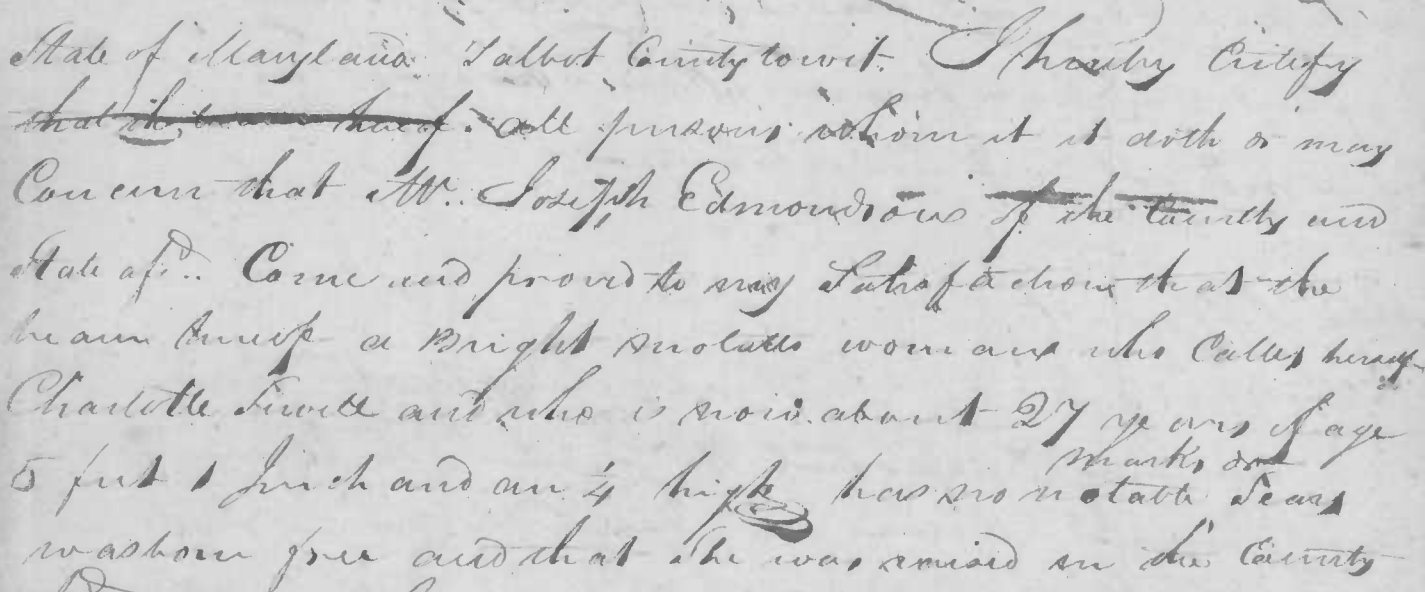 State of Maryland Talbot County towit. I hereby Certify
that the hereof. all persons whom it it doth or may
Concern that Mr. Joseph Edmondson of the County and
State afsd.. Came and proved to my Satisfaction that the
bearer hereof a Bright molatto woman who Calles herself
Charlotte and who is now about 27 years of age
5 feet 1 Inch and an 1/4 high has no notable marks or Scars
was born free and that she was raised in the County